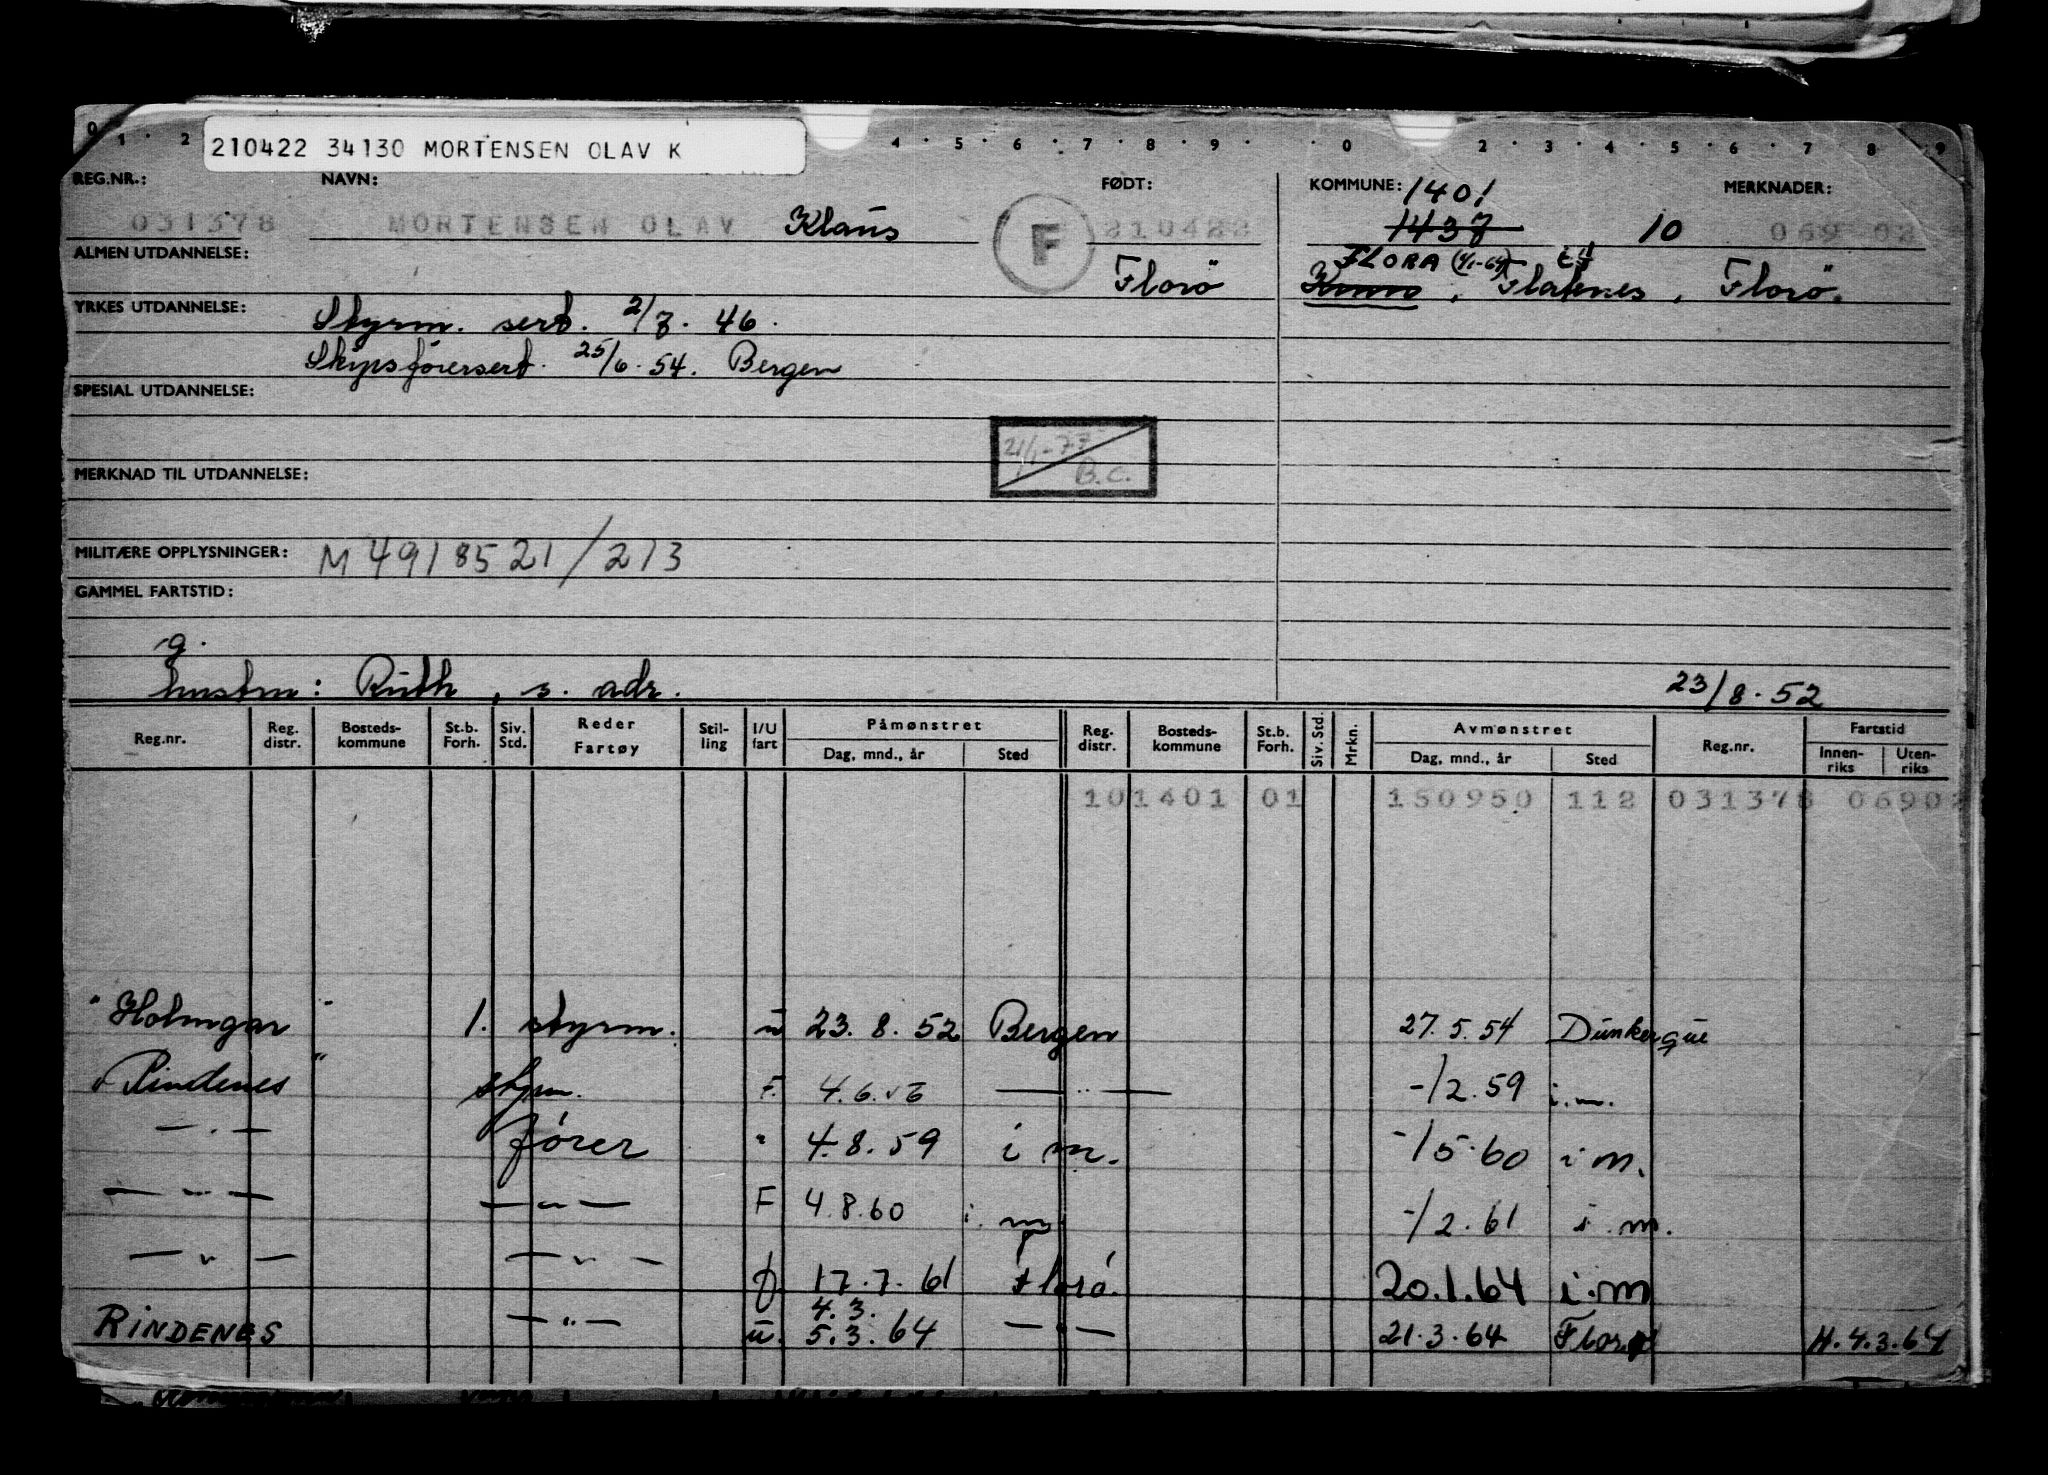 0 1 · 2 4 · 5 · 6 · 7 · 8 · 9 · · 0 2 · 3 · 4 · 5 · 6 · 7 8 9
210422 34130 MORTENSEN OLAV K
REG.NR.: NAVN: FØDT: KOMMUNE: 1401 MERKNADER:
031378 MORTENSEN OLAV Klaus F 210422 1437 10 069 02
ALMEN UTDANNELSE: FLORA (1/1-64)
Florö Kinn, Flatenes, Florö.
YRKES UTDANNELSE: Styrm. sert. 2/7. 46.
Skipsförersert. 25/6. 54. Bergen
SPESIAL UTDANNELSE:
21/1-77
B.C.
MERKNAD TIL UTDANNELSE:
MILITÆRE OPPLYSNINGER: M 4918521/213
GAMMEL FARTSTID:
g.
hustru: Ruth, s. adr. 23/8. 52
Reg.nr. Reg. distr. Bosteds-kommune St.b. Forh. Siv. Std. Reder Fartøy Stil-ling I/U fart Påmønstret Dag, mnd., år Sted Reg. distr. Bosteds-kommune St.b. Forh. Siv. Std. Mrkn. Avmønstret Dag, mnd., år Sted Reg.nr. Fartstid Innen-riks Uten-riks
101401 01 150950 112 031378 06902
"Holmgar" 1. styrm. u 23. 8. 52 Bergen 27. 5. 54 Dunkerque
"Rindenes" styrm. F. 4.6.56 — " — -/2.59 i.m.
— " — fører " 4.8.59 i m. -/5.60 i m.
— " — — " — F 4.8.60 i. m. -/2.61 i.m.
— " — — " — f 17.7.61 Florö. 20.1.64 i.m
4.3.
RINDENES — " — u. 5.3.64 — " — 21.3.64 Florø H. 4.3.64